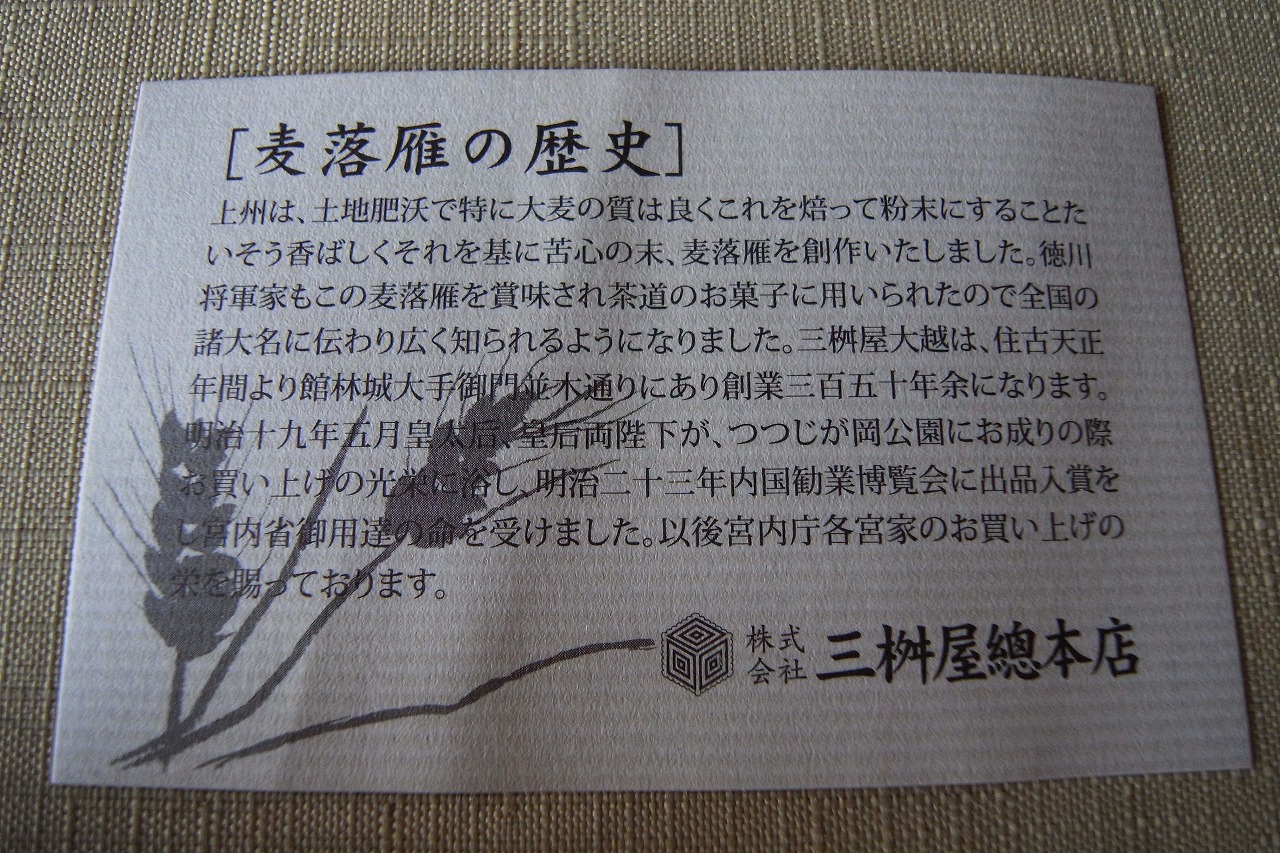 ［麦落雁の歴史］
上州は、土地肥沃で特に大麦の質は良くこれを焙って粉末にすることた
いそう香ばしくそれを基に苦心の末、麦落雁を創作いたしました。徳川
将軍家もこの麦落雁を賞味され茶道のお菓子に用いられたので全国の
諸大名に伝わり広く知られるようになりました。三桝屋大越は、住古天正
年間より館林城大手御門並木通りにあり創業三百五十年余になります。
明治十九年五月皇太后、皇后両陛下が、つつじが岡公園にお成りの際
お買い上げの光栄に浴し、明治二十三年内国勧業博覧会に出品入賞を
し宮内省御用達の命を受けました。以後宮内庁各宮家のお買い上げの
栄を賜っております。
株式会社 三桝屋總本店